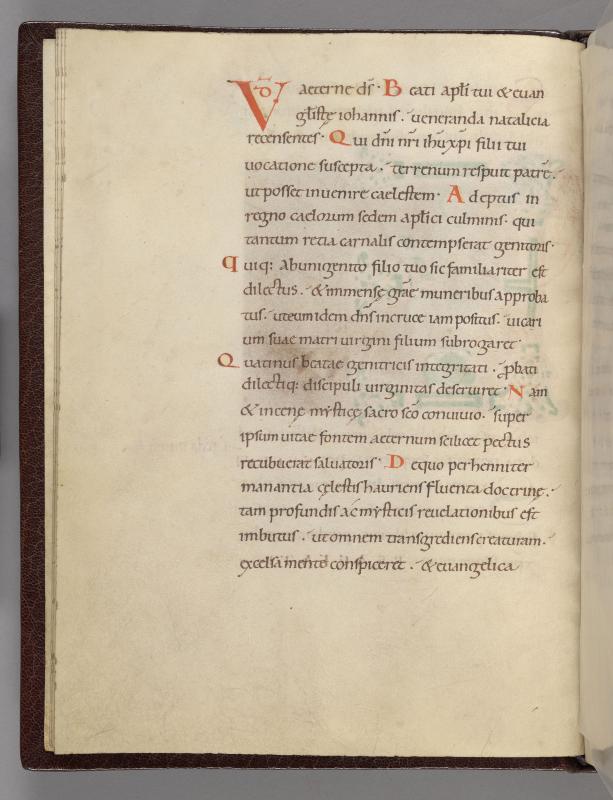 VD aeterne dſ · Beati apłi tui & euan
głiſtę iohannis . ueneranda natalicia
recensentes · Qui dn̄i nr̄i ih̄u xp̄i filii tui
uocatione suscepta . terrenum respuit patrē .
ut posset inuenire caelestem · Adeptus in
regno caelorum sedem apłici culminis · qui
tantum retia carnalis contempserat genitoris ·
quiq: Ab unigenito filio tuo sic familiariter est
dilectus . & immensę grāe muneribus approba
tus · ut eum idem dn̄s in cruce iam positus . uicari
um suae matri uirgini filium subrogaret
Quatinus beatae genitricis integritati . ꝓbati
dilectiq: discipuli uirginitas deseruiret · Nam
& in cenę mysticę sacro sc̄o conuiuio . super
ipsum uitae fontem aeternum scilicet pectus
recubuerat saluatoris · De quo perhenniter
manantia cęlestis hauriens fluenta doctrinę .
tam profundis ac mysticis reuelationibus est
imbutus . ut omnem transgrediens creaturam .
excelsa mente conspiceret . & euangelica